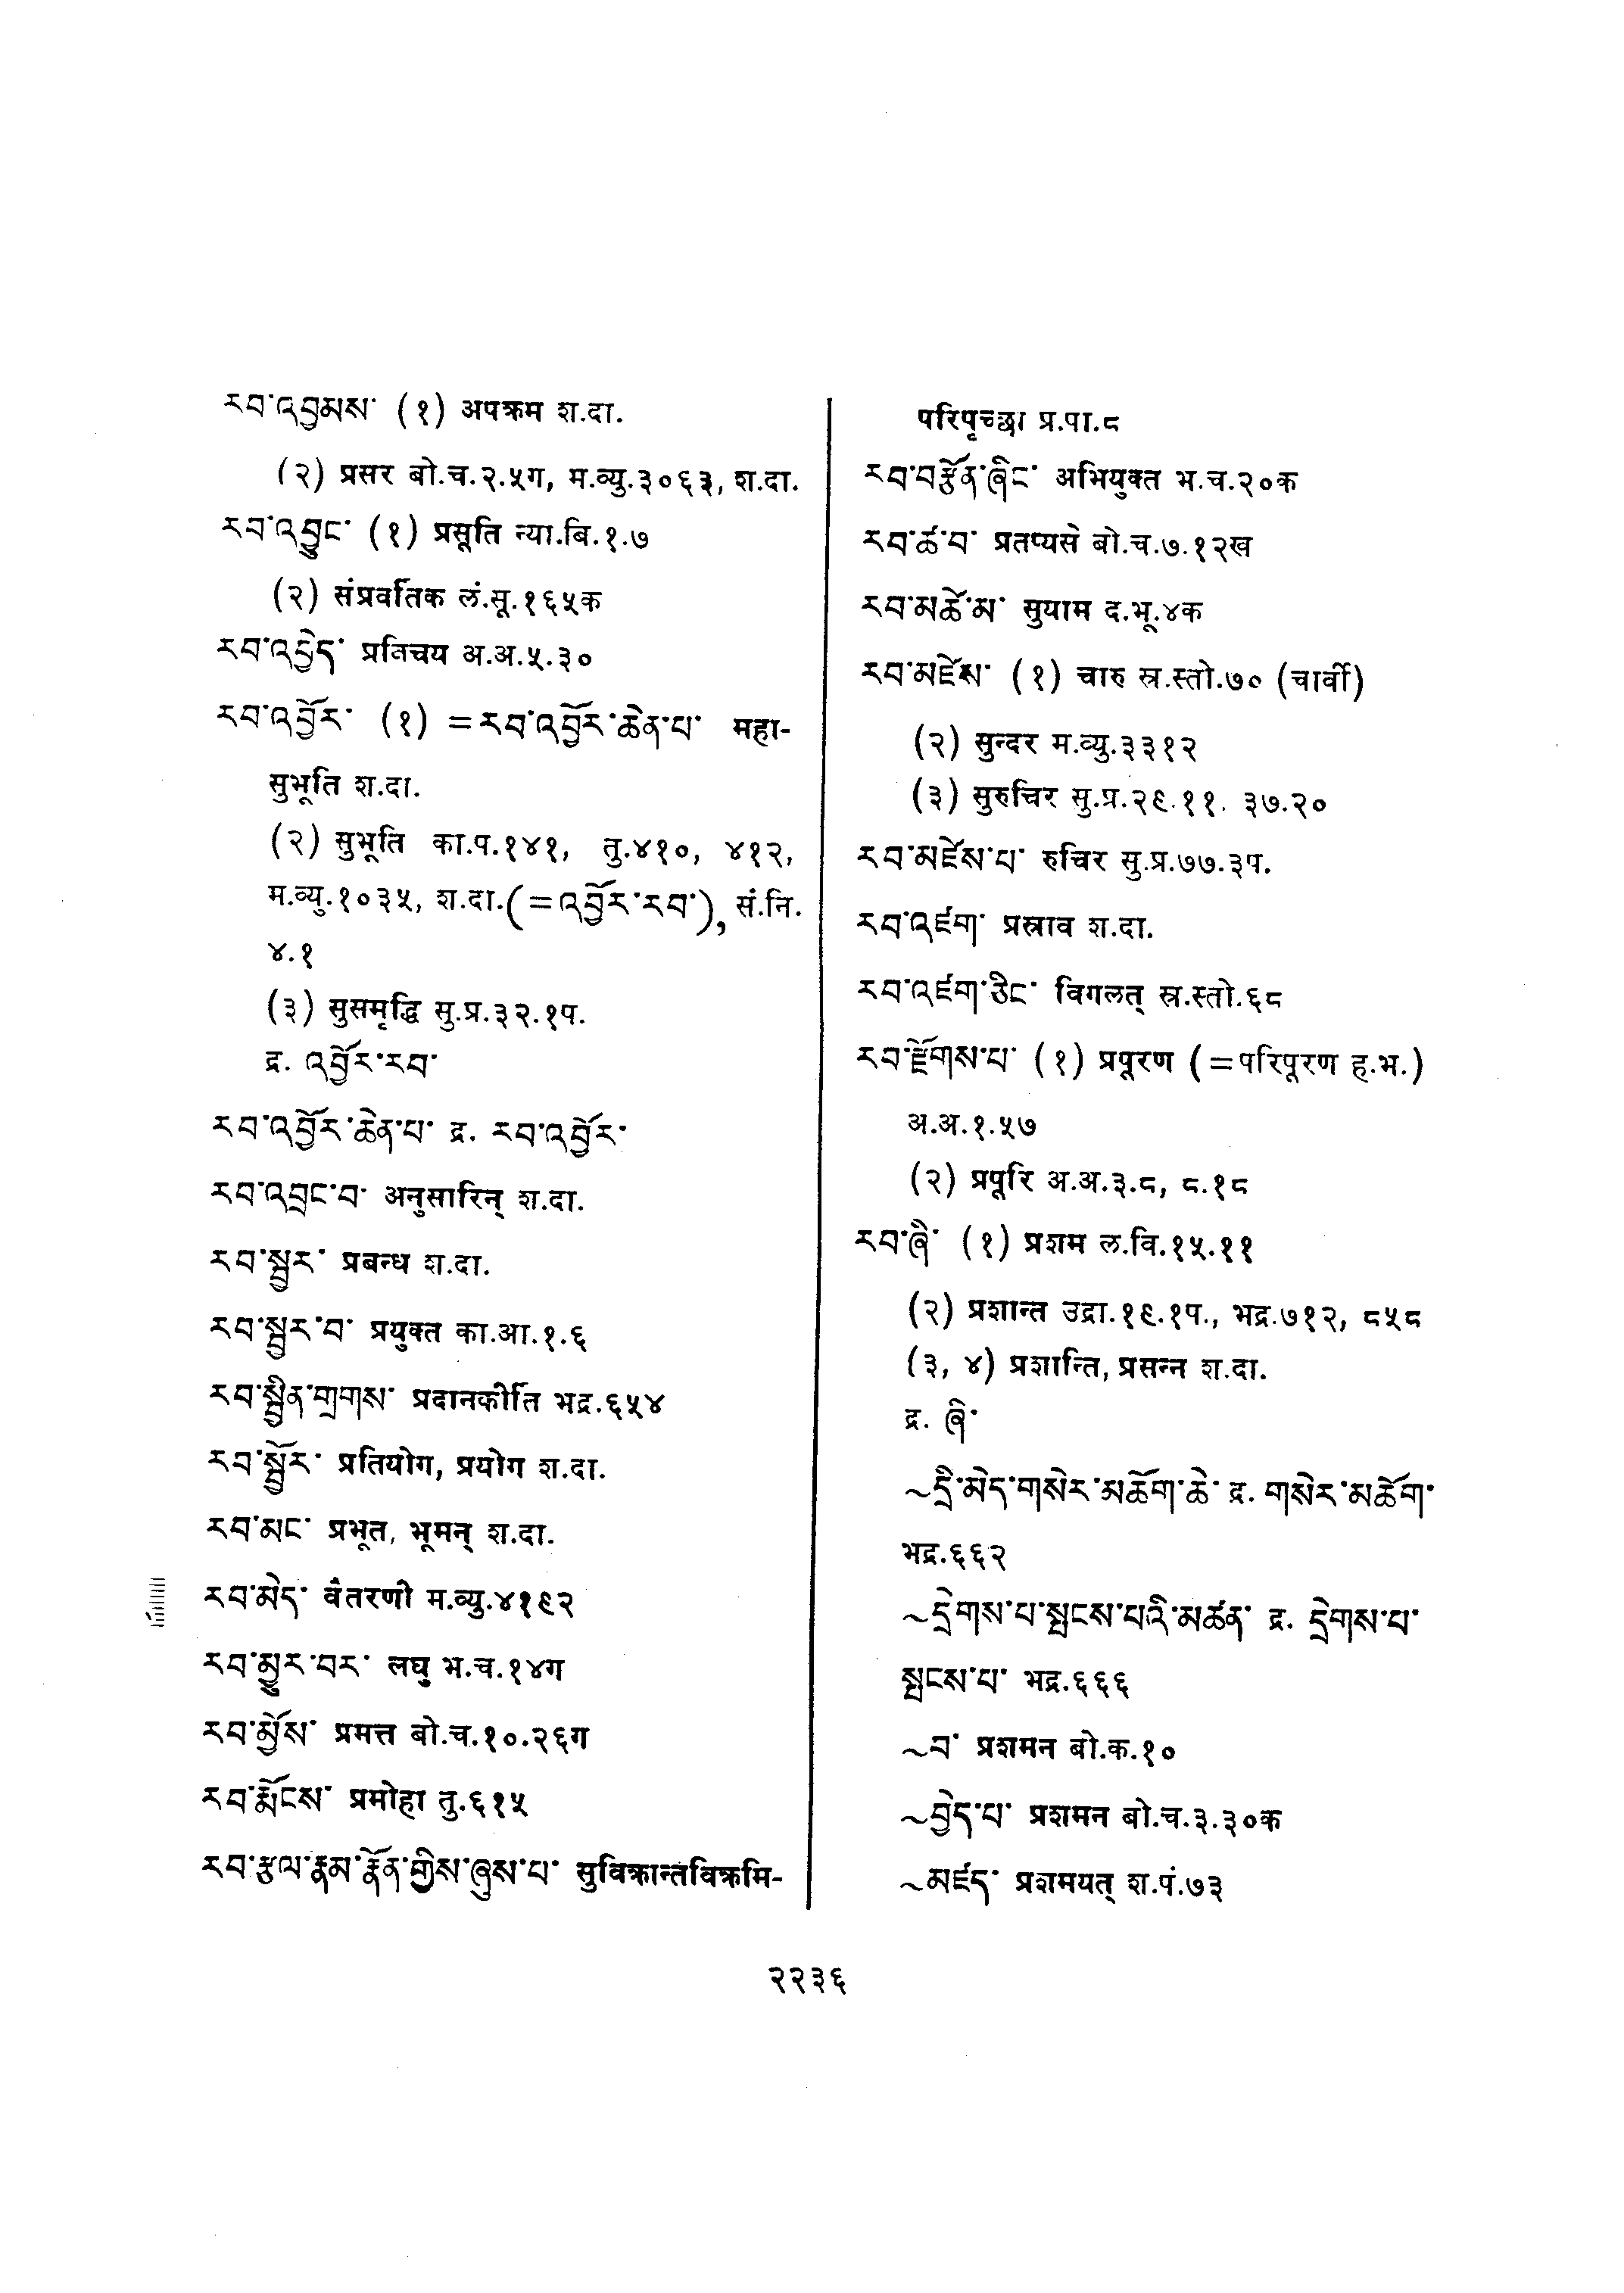 རབ་འབྱམས་ (१) अपक्रम श.दा.
(२) प्रसर बो.च.२.५ग, म.व्यु.३०६३, श.दा.
རབ་འབྱུང་ (१) प्रसूति न्या.बि.१.७
(२) संप्रवर्तिक लं.सू.१६५क
རབ་འབྱེད་ प्रविचय अ.अ.५.३०
རབ་འབྱོར་ (१) =རབ་འབྱོར་ཆེན་པ་ महा-
सुभूति श.दा.
(२) सुभूति का.प.१४१, तु.४१०, ४१२,
म.व्यु.१०३५, श.दा.(=འབྱོར་རབ་), सं.नि.
४.१
(३) सुसमृद्धि सु.प्र.३२.१प.
द्र. འབྱོར་རབ་
རབ་འབྱོར་ཆེན་པ་ द्र. རབ་འབྱོར་
རབ་འབྲང་བ་ अनुसारिन् श.दा.
རབ་སྦྱར་ प्रबन्ध श.दा.
རབ་སྦྱར་བ་ प्रयुक्त का.आ.१.६
རབ་སྦྱིན་གྲགས་ प्रदानकीर्ति भद्र.६५४
རབ་སྦྱོར་ प्रतियोग, प्रयोग श.दा.
རབ་མང་ प्रभूत, भूमन् श.दा.
རབ་མེད་ वैतरणी म.व्यु.४१९२
རབ་མྱུར་བར་ लघु भ.च.१४ग
རབ་མྱོས་ प्रमत्त बो.च.१०.२६ग
རབ་རྨོངས་ प्रमोहा तु.६१५
རབ་རྩལ་རྣམ་རྣོན་གྱིས་ཞུས་པ་ सुविक्रान्तविक्रमि-
परिपृच्छा प्र.पा.८
རབ་བརྩོན་ཞིང་ अभियुक्त भ.च.२०क
རབ་ཚ་བ་ प्रतप्यसे बो.च.७.१२ख
རབ་མཚེ་མ་ सुयाम द.भू.४क
རབ་མཛེས་ (१) चारु स्र.स्तो.७० (चार्वी)
(२) सुन्दर म.व्यु.३३१२
(३) सुरुचिर सु.प्र.२९.११. ३७.२०
རབ་མཛེས་པ་ रुचिर सु.प्र.७७.३प.
རབ་འཛག་ प्रस्राव श.दा.
རབ་འཛག་ཅིང་ विगलत् स्र.स्तो.६८
རབ་རྫོགས་པ་ (१) प्रपूरण (=परिपूरण ह.भ.)
अ.अ.१.५७
(२) प्रपूरि अ.अ.३.८, ८.१८
རབ་ཞི་ (१) प्रशम ल.वि.१५.११
(२) प्रशान्त उद्रा.१९.१प., भद्र.७१२, ८५८
(३, ४) प्रशान्ति, प्रसन्न श.दा.
द्र. ཞི་
~དྲི་མེད་གསེར་མཆོག་ཆེ་ द्र. གསེར་མཆོག་
भद्र.६६२
~དྲེགས་པ་སྤངས་པའི་མཚན་ द्र. དྲེགས་པ་
སྤངས་པ་ भद्र.६६६
~བ་ प्रशमन बो.क.१०
~བྱེད་པ་ प्रशमन बो.च.३.३०क
~མཛད་ प्रशमयत् श.पं.७३
२२३६